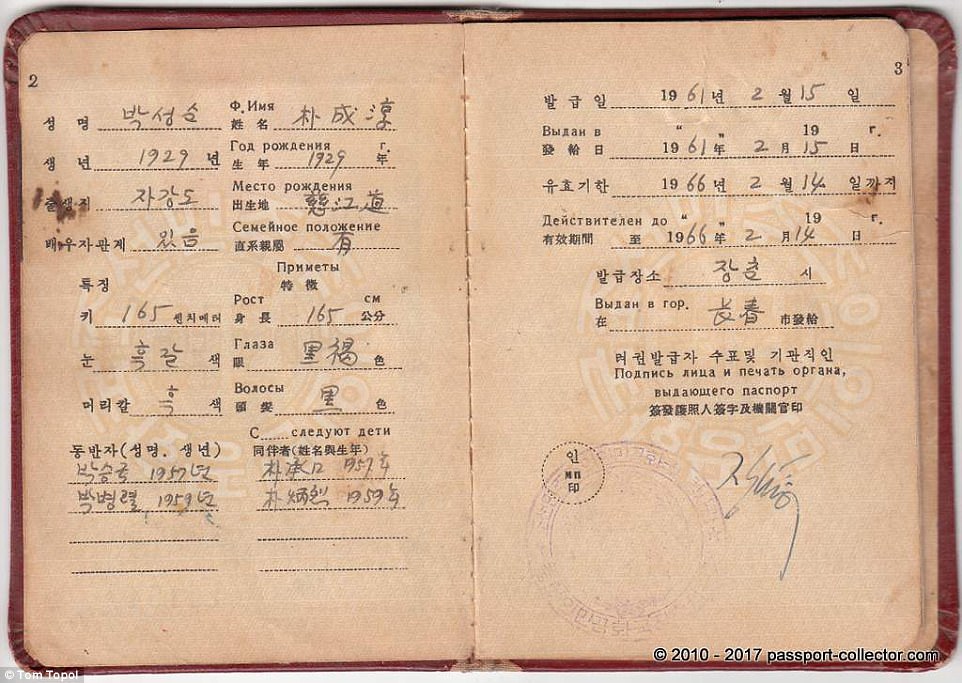 2
성 명 박성순 Ф. Имя 姓 名 朴成淳
생 년 1929 년 Год рождения г. 生 年 1929 年
출생지 자강도 Место рождения 出生地 慈江道
배우자관계 있음 Семейное положение 直系親屬 有
특징 Приметы 特徵
키 165 센치메터 Рост см 身長 165 公分
눈 흑갈 색 Глаза 眼 黑褐 色
머리칼 흑 색 Волосы 頭髮 黑 色
С следуют дети
동반자(성명. 생년) 同伴者(姓名與生年)
1957년 朴承 1957年
박병렬 1959년 朴炳烈 1959年
3
발급일 1961년 2월 15일
Выдан в “ „ 19 г.
發給日 1961年 2月 15日
유효기한 1966년 2월 14일까지
Действителен до “ „ 19 г.
有效期間 至 1966年 2月 14日
발급장소 장춘 시
Выдан в гор.
在 長春 市發給
려권발급자 수표및 기관적인
Подпись лица и печать органа,
выдающего паспорт
簽發護照人簽字及機關官印
인
МП
印
© Tom Topol
© 2010 - 2017 passport-collector.com